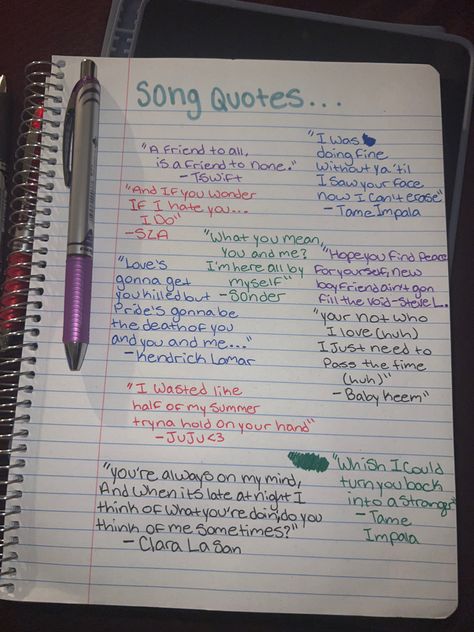 Song Quotes...
"A friend to all,
is a friend to none."
- TSwift
"I Was
doing fine
without ya 'til
I saw your face
now I can't erase"
- Tame Impala
"And If you wonder
If I hate you...
I Do"
- SZA
"What you mean,
you and me?
I'm here all by
myself"
- Sonder
"Hope you find Peace
For yourself, new
boyfriend ain't gon
fill the void - Steve L..
"Love's
gonna get
you killed but
Pride's gonna be
the death of you
and you and me..."
- Kendrick Lamar
"your not who
I love (huh)
I Just need to
Pass the time
(huh)"
- Baby Keem"
"I Wasted like
half of my summer
tryna hold on your hand"
- JUJU<3
"you're always on my mind,
And when its late at night I
think of what you're doin, do you
think of me sometimes?"
- Clara La San
"Whish I Could
turn you back
into a stranger"
- Tame
Impala